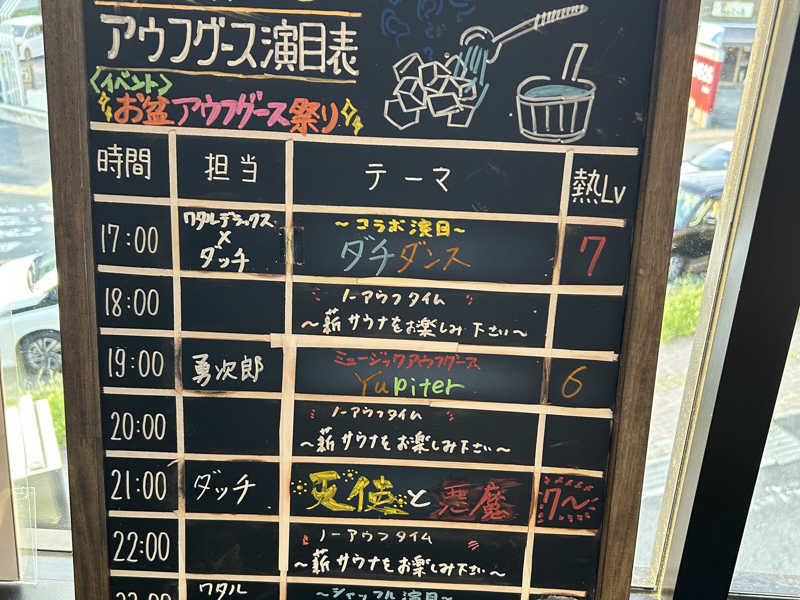 アウフグース演目表
〈イベント〉
お盆アウフグース祭り
時間 担当 テーマ 熱Lv
17:00 ワタルデラックス × ダッチ ～コラボ演目～ ダチダンス 7
18:00 ノーアウフタイム
～薪サウナをお楽しみ下さい～
19:00 勇次郎 ミュージックアウフグース
Yupiter 6
20:00 ノーアウフタイム
～薪サウナをお楽しみ下さい～
21:00 ダッチ 天使と悪魔 7～
22:00 ノーアウフタイム
～薪サウナをお楽しみ下さい～
23:00 ワタル ～シャッフル演目～